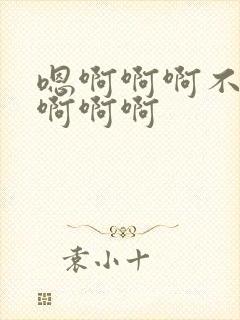 嗯啊啊啊不
啊啊啊
袁小十